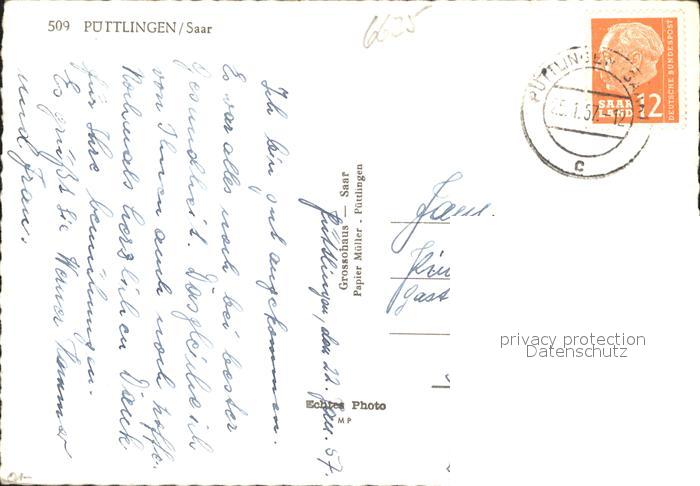 509 PÜTTLINGEN/Saar
6625
PÜTTLINGEN
25.1.57.-12
c
SAAR
LAND 12
DEUTSCHE BUNDESPOST
Püttlingen, den 22. Jan. 57.
Ich bin gut angekommen.
Es war alles noch bei bester
Gesundheit. Dasgleiche ich
von Ihnen auch noch hoffe.
Nochmals herzlichen Dank
für Ihre bemühungen.
Es grüßt Sie Werner
und Frau.
Grossohaus — Saar
Papier Müller . Püttlingen
Echtes Photo
MP
Fam.
gast
privacy protection
Datenschutz